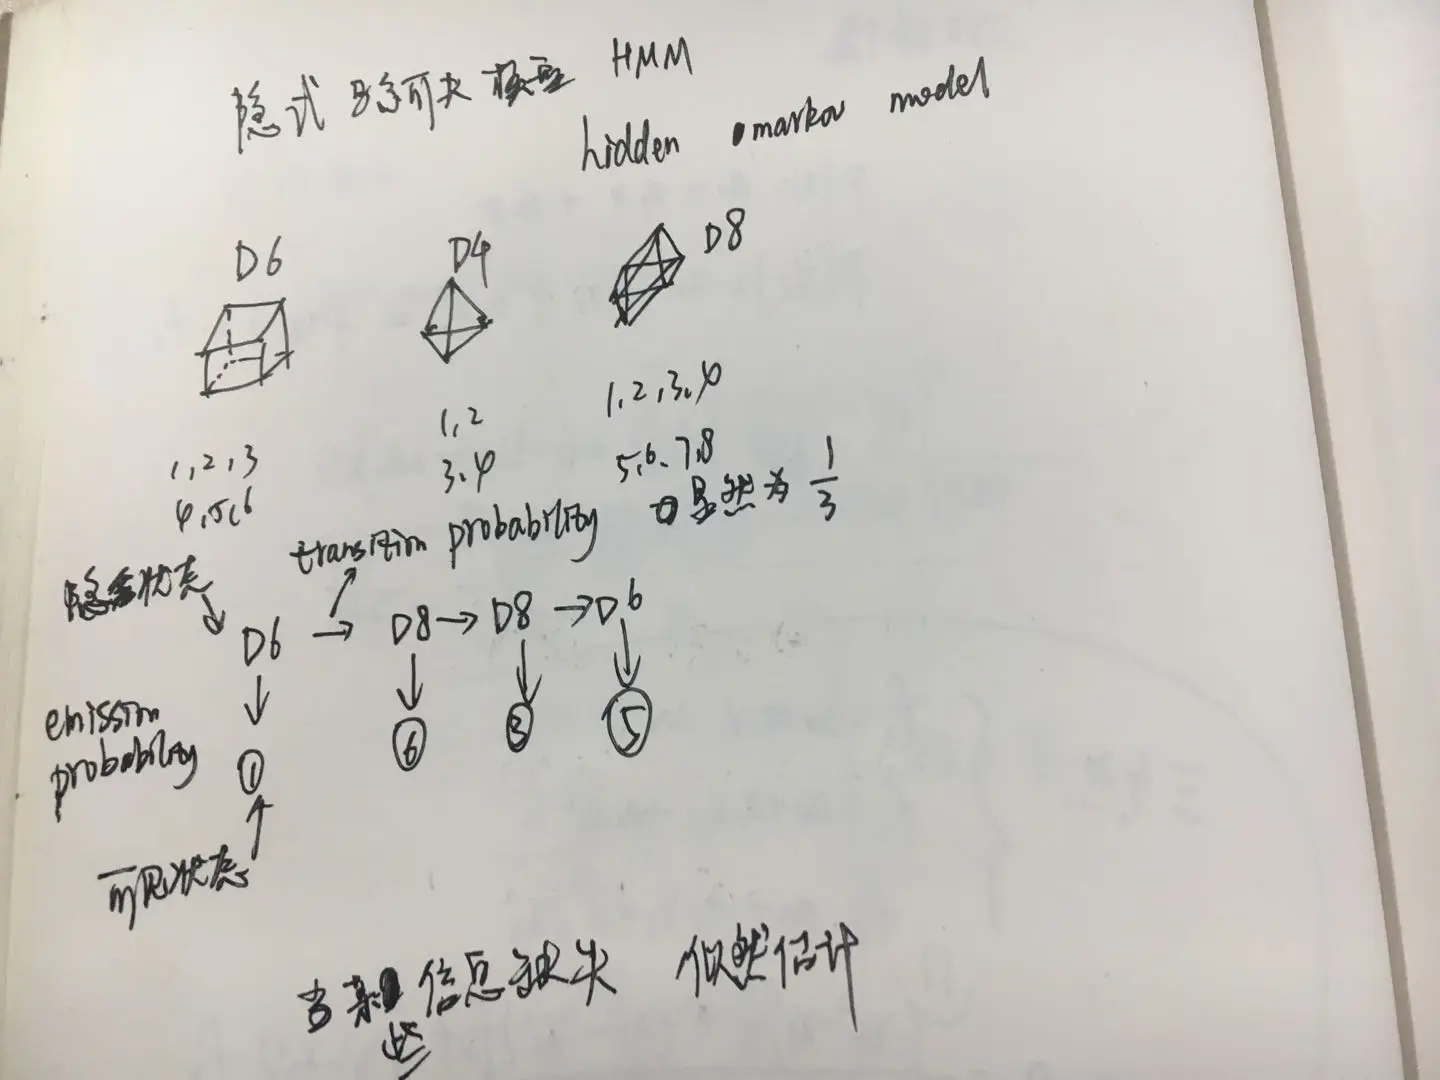 隐式马尔可夫模型 HMM
hidden markov model
D6 D4 D8
1,2,3
4,5,6
1,2
3,4
1,2,3,4
5,6,7,8
transition probability 显然为 1/3
隐含状态
D6 → D8 → D8 → D6
emission
probability
① ⑥ ③ ⑤
可见状态
当某些信息缺失 似然估计